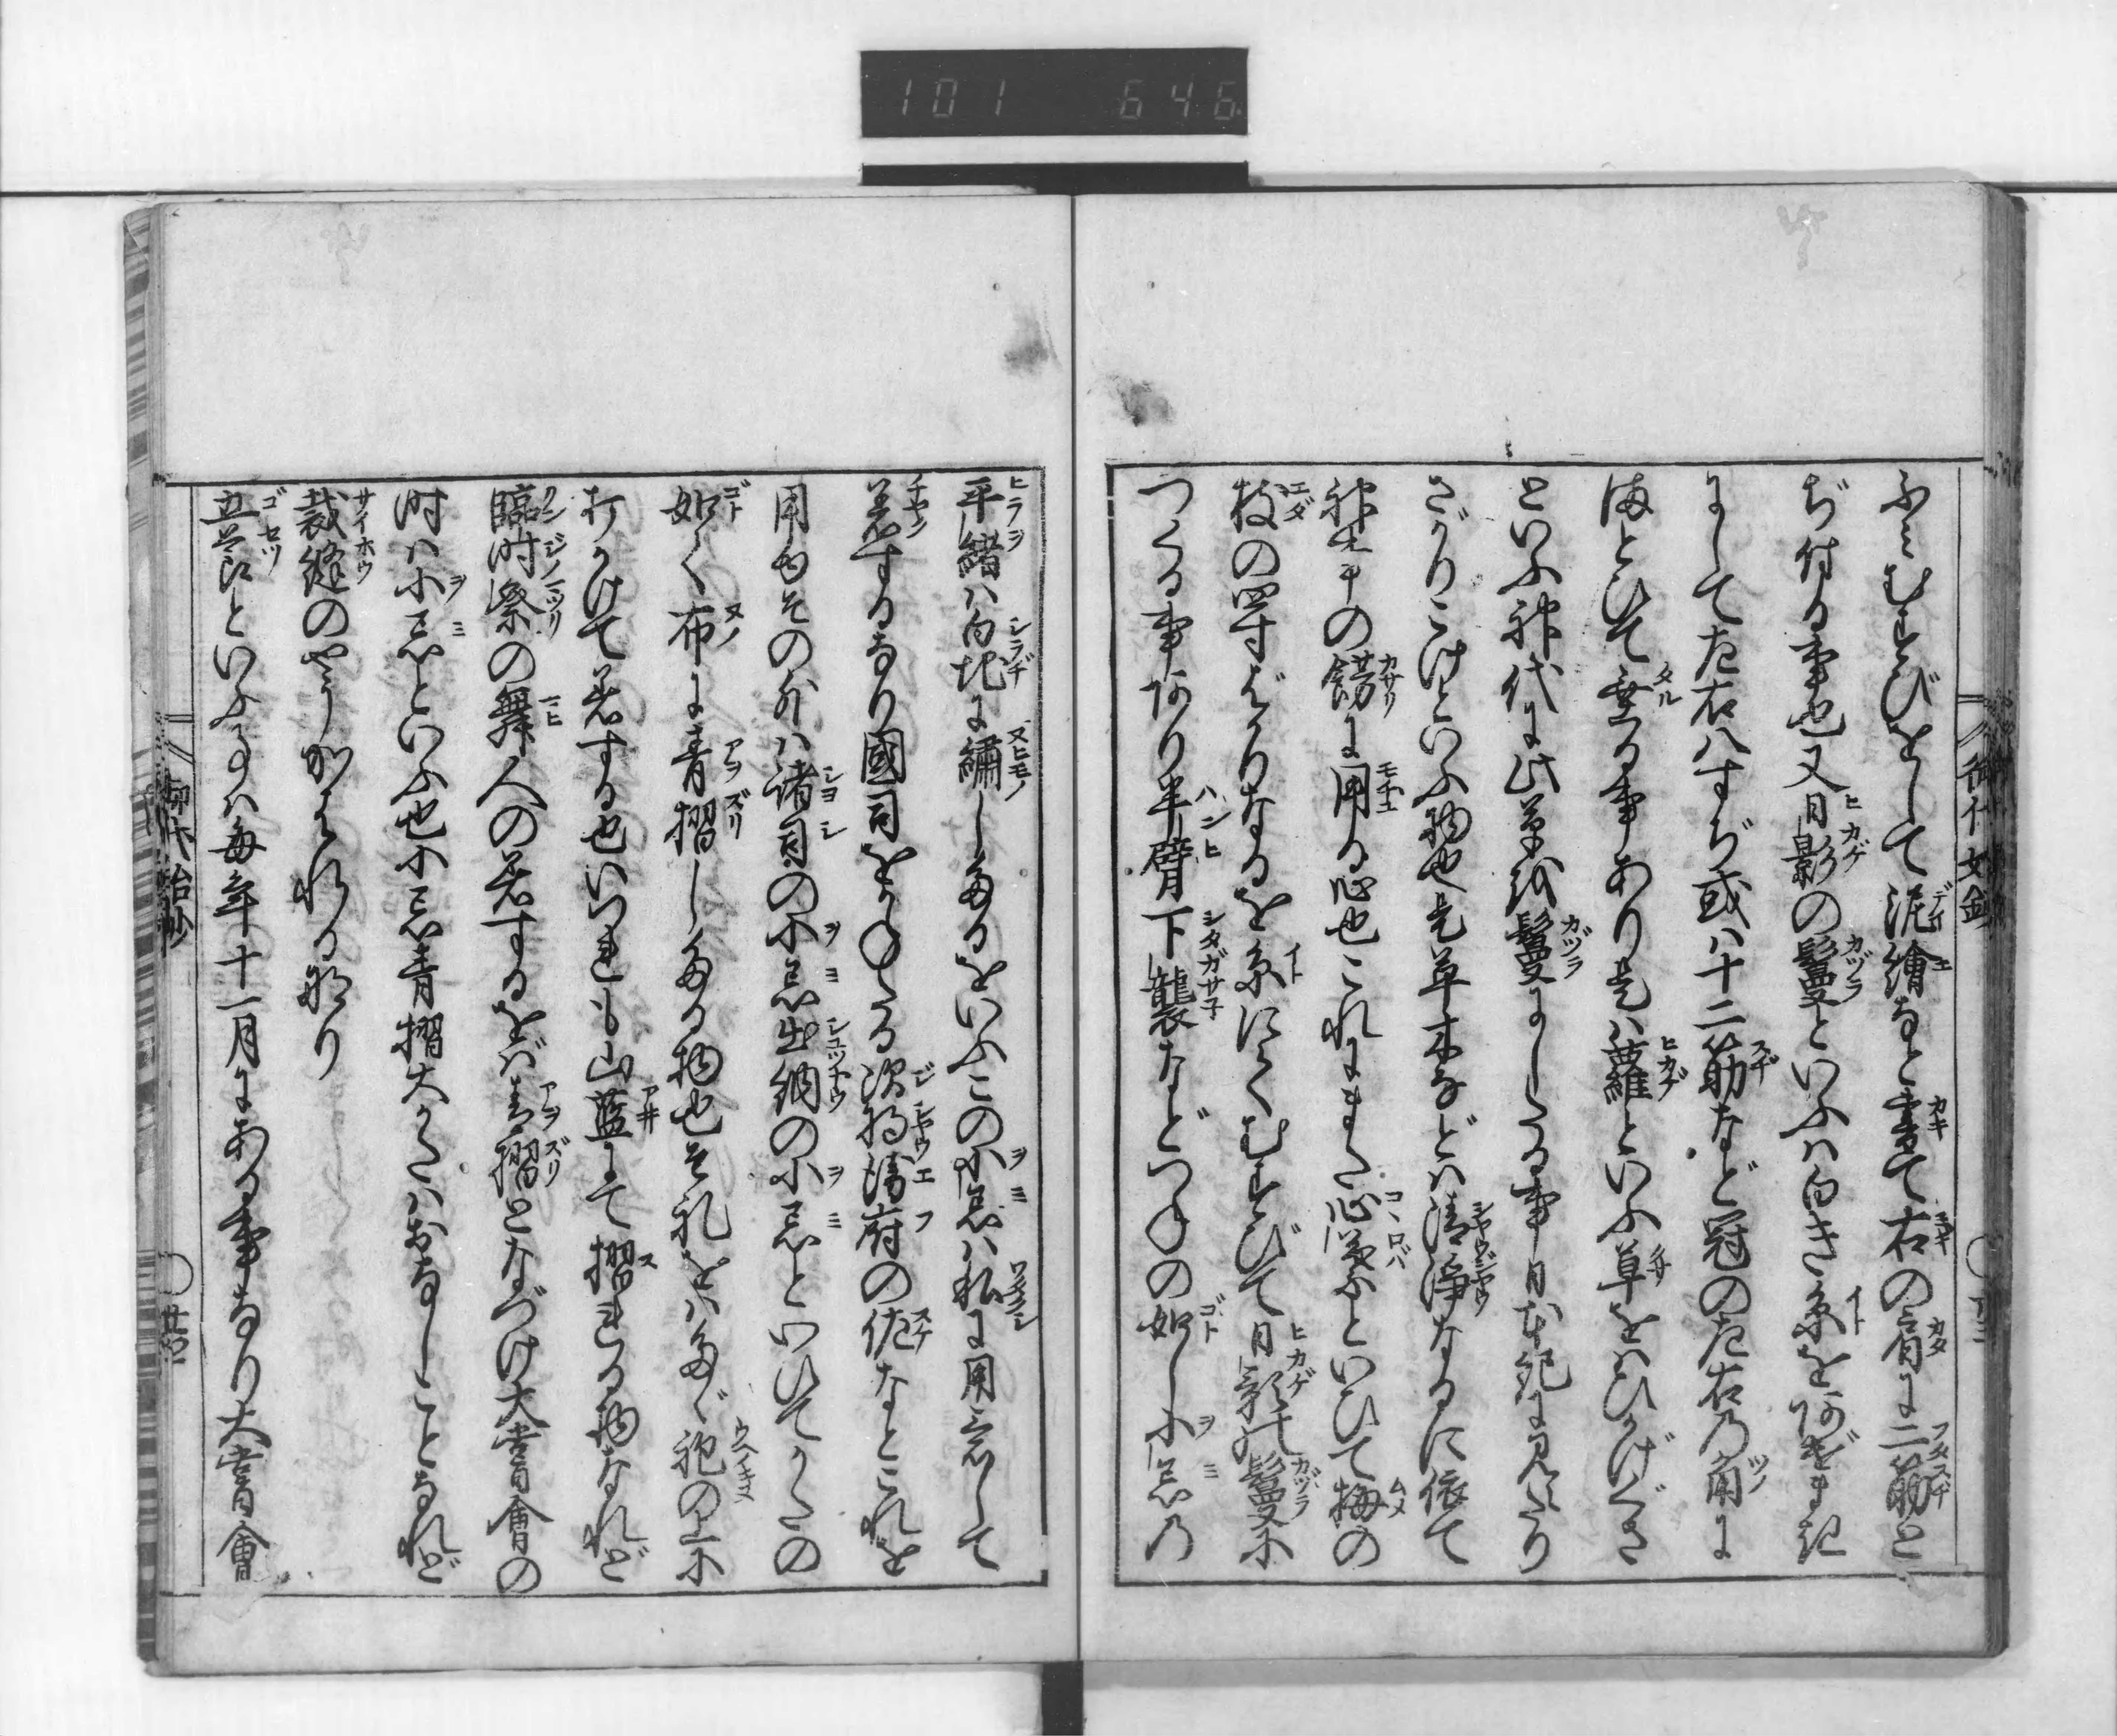 101 646
ふミむすびをして泥繪など畫て右の肩に二筋と
ぢ付る事也又日影の鬘といふハ白き糸を阿げまき
にして左右八すぢ或ハ十二筋など冠の左右乃角に
はとひて垂る事あり是ハ蘿といふ草をひかげぐさ
といふ神代に此草越鬘にしたる事日本紀に見へたり
さがりこけといふ物也是草木などハ清淨なるに依て
神事の餝に用る心也これにまた心葉といひて梅の
枝の四寸ばかりなるを糸にてむすびて日影の鬘に
つくる事阿り半臂下襲などつねの如し小忌乃
平緒ハ白地に繡したるをいふこの小忌ハ私に用意して
着するなり國司をかねたる次将衛府の佐なとこれを
用由その外ハ諸司の小忌出納の小忌といひてかたの
如く布に青摺したる物也是礼をハたゞ袍の上に
打かけて着する也いつれも山藍にて摺れる物なれど
臨時祭の舞人の着するをば青摺となづけ大嘗會の
時ハ小忌といふ也小忌青摺大かたハおなしことなれど
裁縫のやうかはれる那り
五節といふ事ハ毎年十一月にある事なり大嘗會